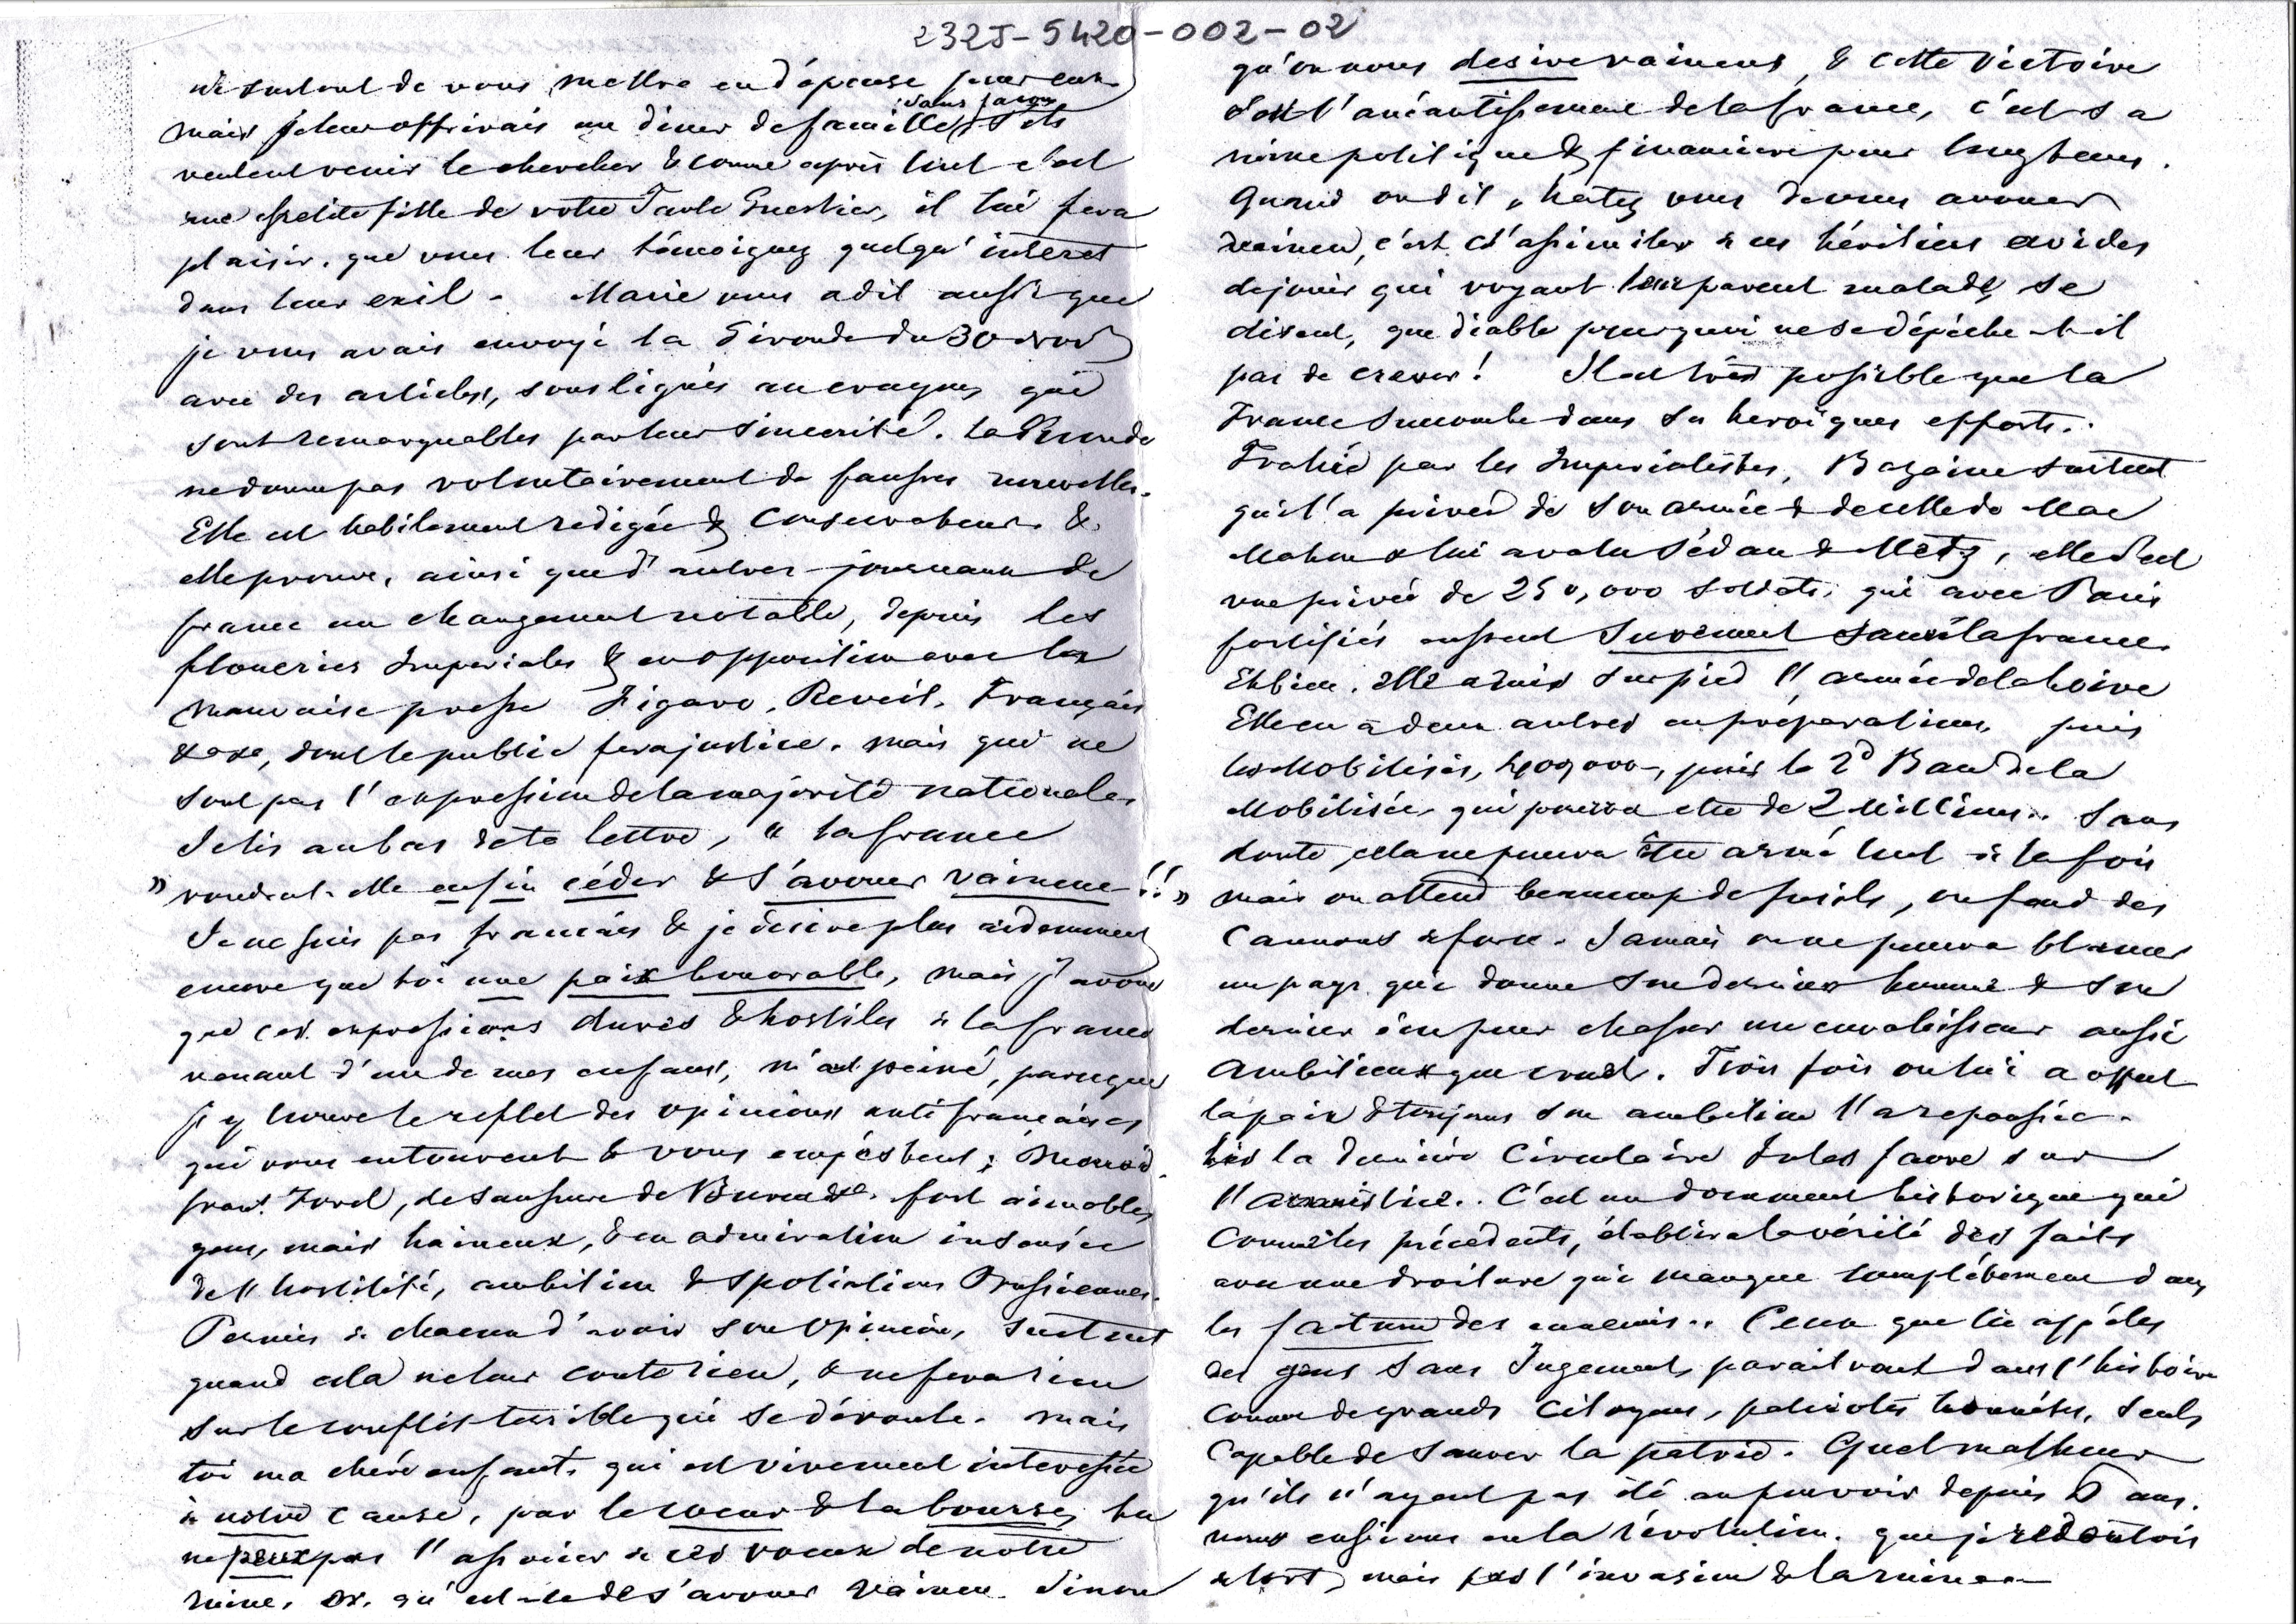 232J-5420-002-02
ni surtout de vous mettre en dépense pour eux
sans façon
mais je leur offrirais un diner de famille, s'ils
veulent venir le chercher & comme après tout c'est
une petite fille de votre Tante Guestier, il lui fera
plaisir, que vous leur témoignez quelqu'intéret
dans leur exil - Marie vous a dit aussi que
je vous avais envoyé la Gironde du 30 nov
avec des articles, soulignés au crayon, qui
sont remarquables par leur sincerité. La Gironde
ne donne pas volontairement de fausses nouvelles.
Elle est habilement redigée & Conservateur &
elle prouve, ainsi que d'autres journaux de
france un changement notable, depuis les
floueries Imperiales & en opposition avec la
mauvaise presse Figaro, Reveil, Français
dont le public fera justice. mais qui ne
sont pas l'expression de la majorité nationale.
Je lis au bas de ta lettre, " la france
" voudrat-elle enfin céder & s'avouer vaincue !! "
Je ne suis pas français & je desire plus ardemment
encore que toi une paix honorable, mais j'avoue
que ces expressions dures & hostiles à la france
venant d'une de mes enfants, m'ont peiné, parceque
j'y trouve le reflet des opinions anti françaises
qui vous entourent & vous empéstent;
Forel, de Saussure de fort aimables
gens, mais haineux, & en admiration insensée
de l'hostilité, ambition & spoliations Prussiennes.
Permis à chacun d'avoir son opinion, surtout
quand cela ne leur coute rien, & ne fera rien
sur le conflit terrible qui se déroule. mais
toi ma chére enfant, qui est vivement interessée
à notre cause, par le coeur & la bourse, tu
ne peux pas t'associer à ces voeux de notre
ruine. Or, qu'est-ce de s'avouer vaincu. Sinon
qu'on nous desire vaincus, & cette victoire
c'est l'anéantissement de la france, c'est sa
ruine politique & financiere pour longtems.
Quand on dit, hatez vous de vous avouer
vaincu, c'est s'assimiler à ces héritiers avides
de jouir qui voyant leur parent malade, se
disent, que diable pourquoi ne se dépéche-t-il
pas de crever! Il est trés possible que la
France succombe dans ses heroïques efforts.
Trahie par les Imperialistes, Bazaine surtout
qui l'a privée de son armée & de celle de Mac
Mahon & lui a valu Sédan & Metz, elle s'est
vue privée de 250,000 soldats, qui avec Paris
fortifiés eussent surement sauvé la france.
Eh bien, elle a mis sur pied l'armée de la Loire
Elle en a deux autres en préparations, puis
les Mobilisés, 400,000, puis le 2d Ban de la
Mobilisée, qui pourra etre de 2 Millions. Sans
doute, cela ne pourra être armé tout à la fois
mais on attend beaucoup de fusils, on fond des
Canons à force. Jamais on ne pourra blamer
un pays qui donne son dernier homme & son
dernier écu pour chasser un envahisseur aussi
Ambitieux que cruel. Trois fois on lui a offert
la paix & toujours son ambition l'a repoussée.
Lis la derniére Circulaire Jules favre sur
l'armistice. C'est un document historique qui
Comme les précédents, établira la vérité des faits
avec une droiture qui manque complétement dans
les factum des ennemis. Ceux que tu appéles
des gens sans Jugement, paraitront dans l'histoire
comme de grands Citoyens, patriotes honnêtes, seuls
capable de sauver la patrie. Quel malheur
qu'ils n'ayent pas été au pouvoir depuis 6 ans.
nous eussions eu la révolution, que je redoutois
à tort, mais pas l'invasion & la ruine